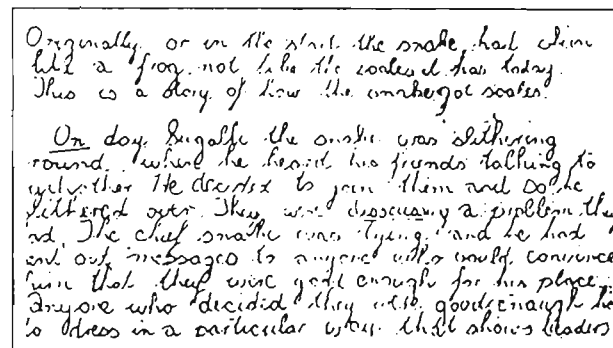 Originally, or in the start the snake had skin
like a frog not like the scales it has today.
This is a story of how the snake got scales.
On day, the snake was slithering
round, when he heard his friends talking to
He decided to join them and so he
slithered over. They were discussing a problem they
The chief snake was dying, and he had
out messages to anyone who would convince
him that they were good enough for his place.
anyone who decided they were good enough
to dress in a particular way that shows leaders